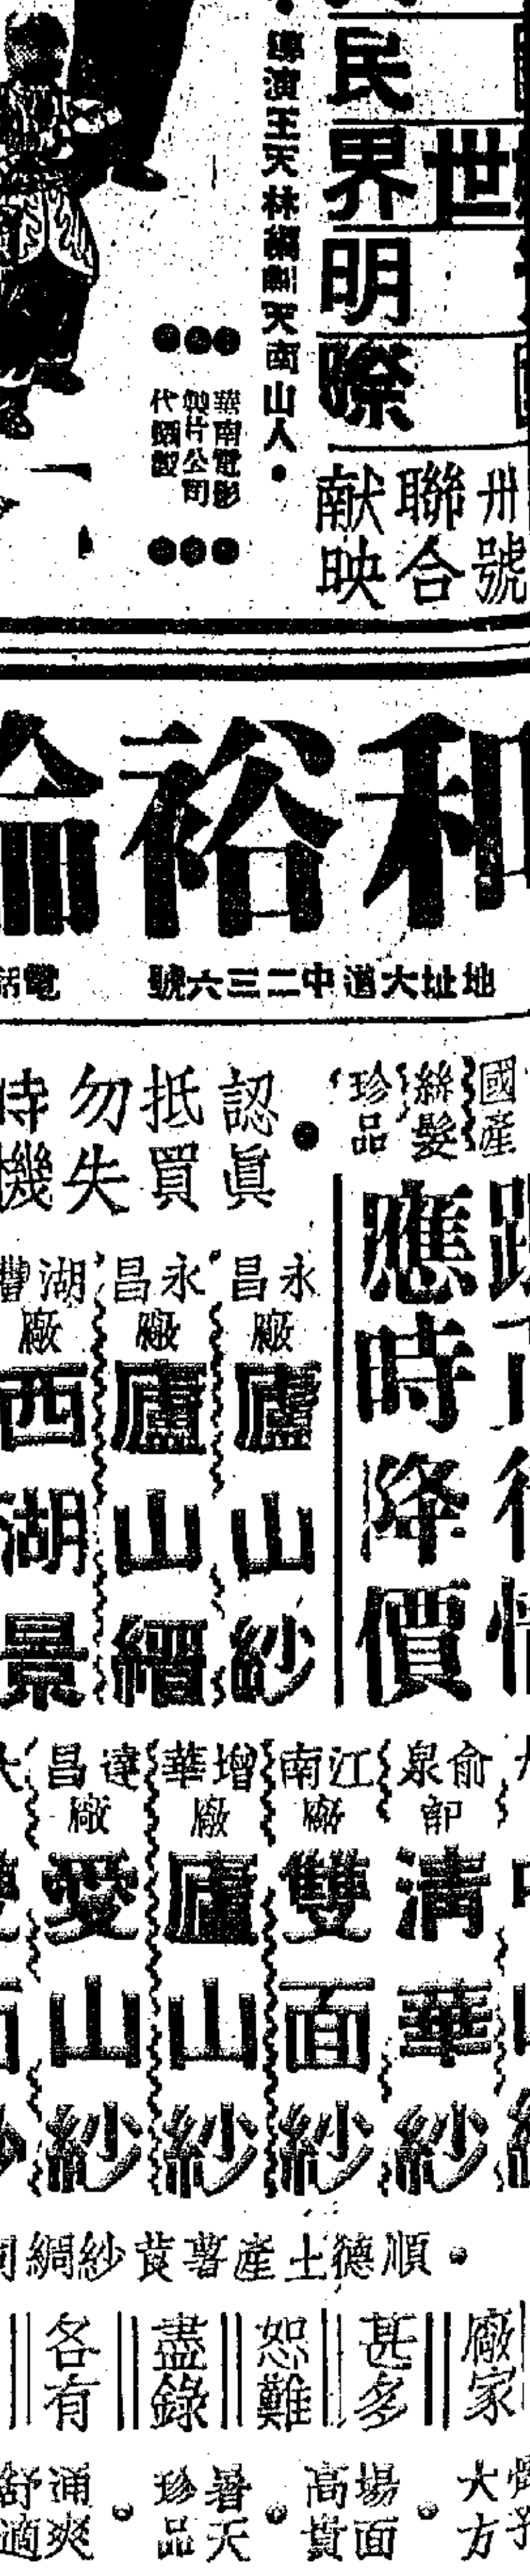 世
民
界
明
際
卅號
聯合
献映
導演王天林編劇天南山人
華南電影
製片公司
代攝製
和裕
地址大道中二三六號
電話
國產
絲髮
珍品
應時降價
認眞
抵買
勿失
時機
永昌廠
廬山紗
永昌廠
廬山縎
湖豐廠
西湖景
俞泉記
清華紗
江南廠
雙面紗
增華廠
廬山紗
達昌廠
愛山紗
順德土產薯莨紗綢
廠家
甚多
恕難
盡錄
各有
大方
場面
高貴
暑天
珍品
通爽
舒適